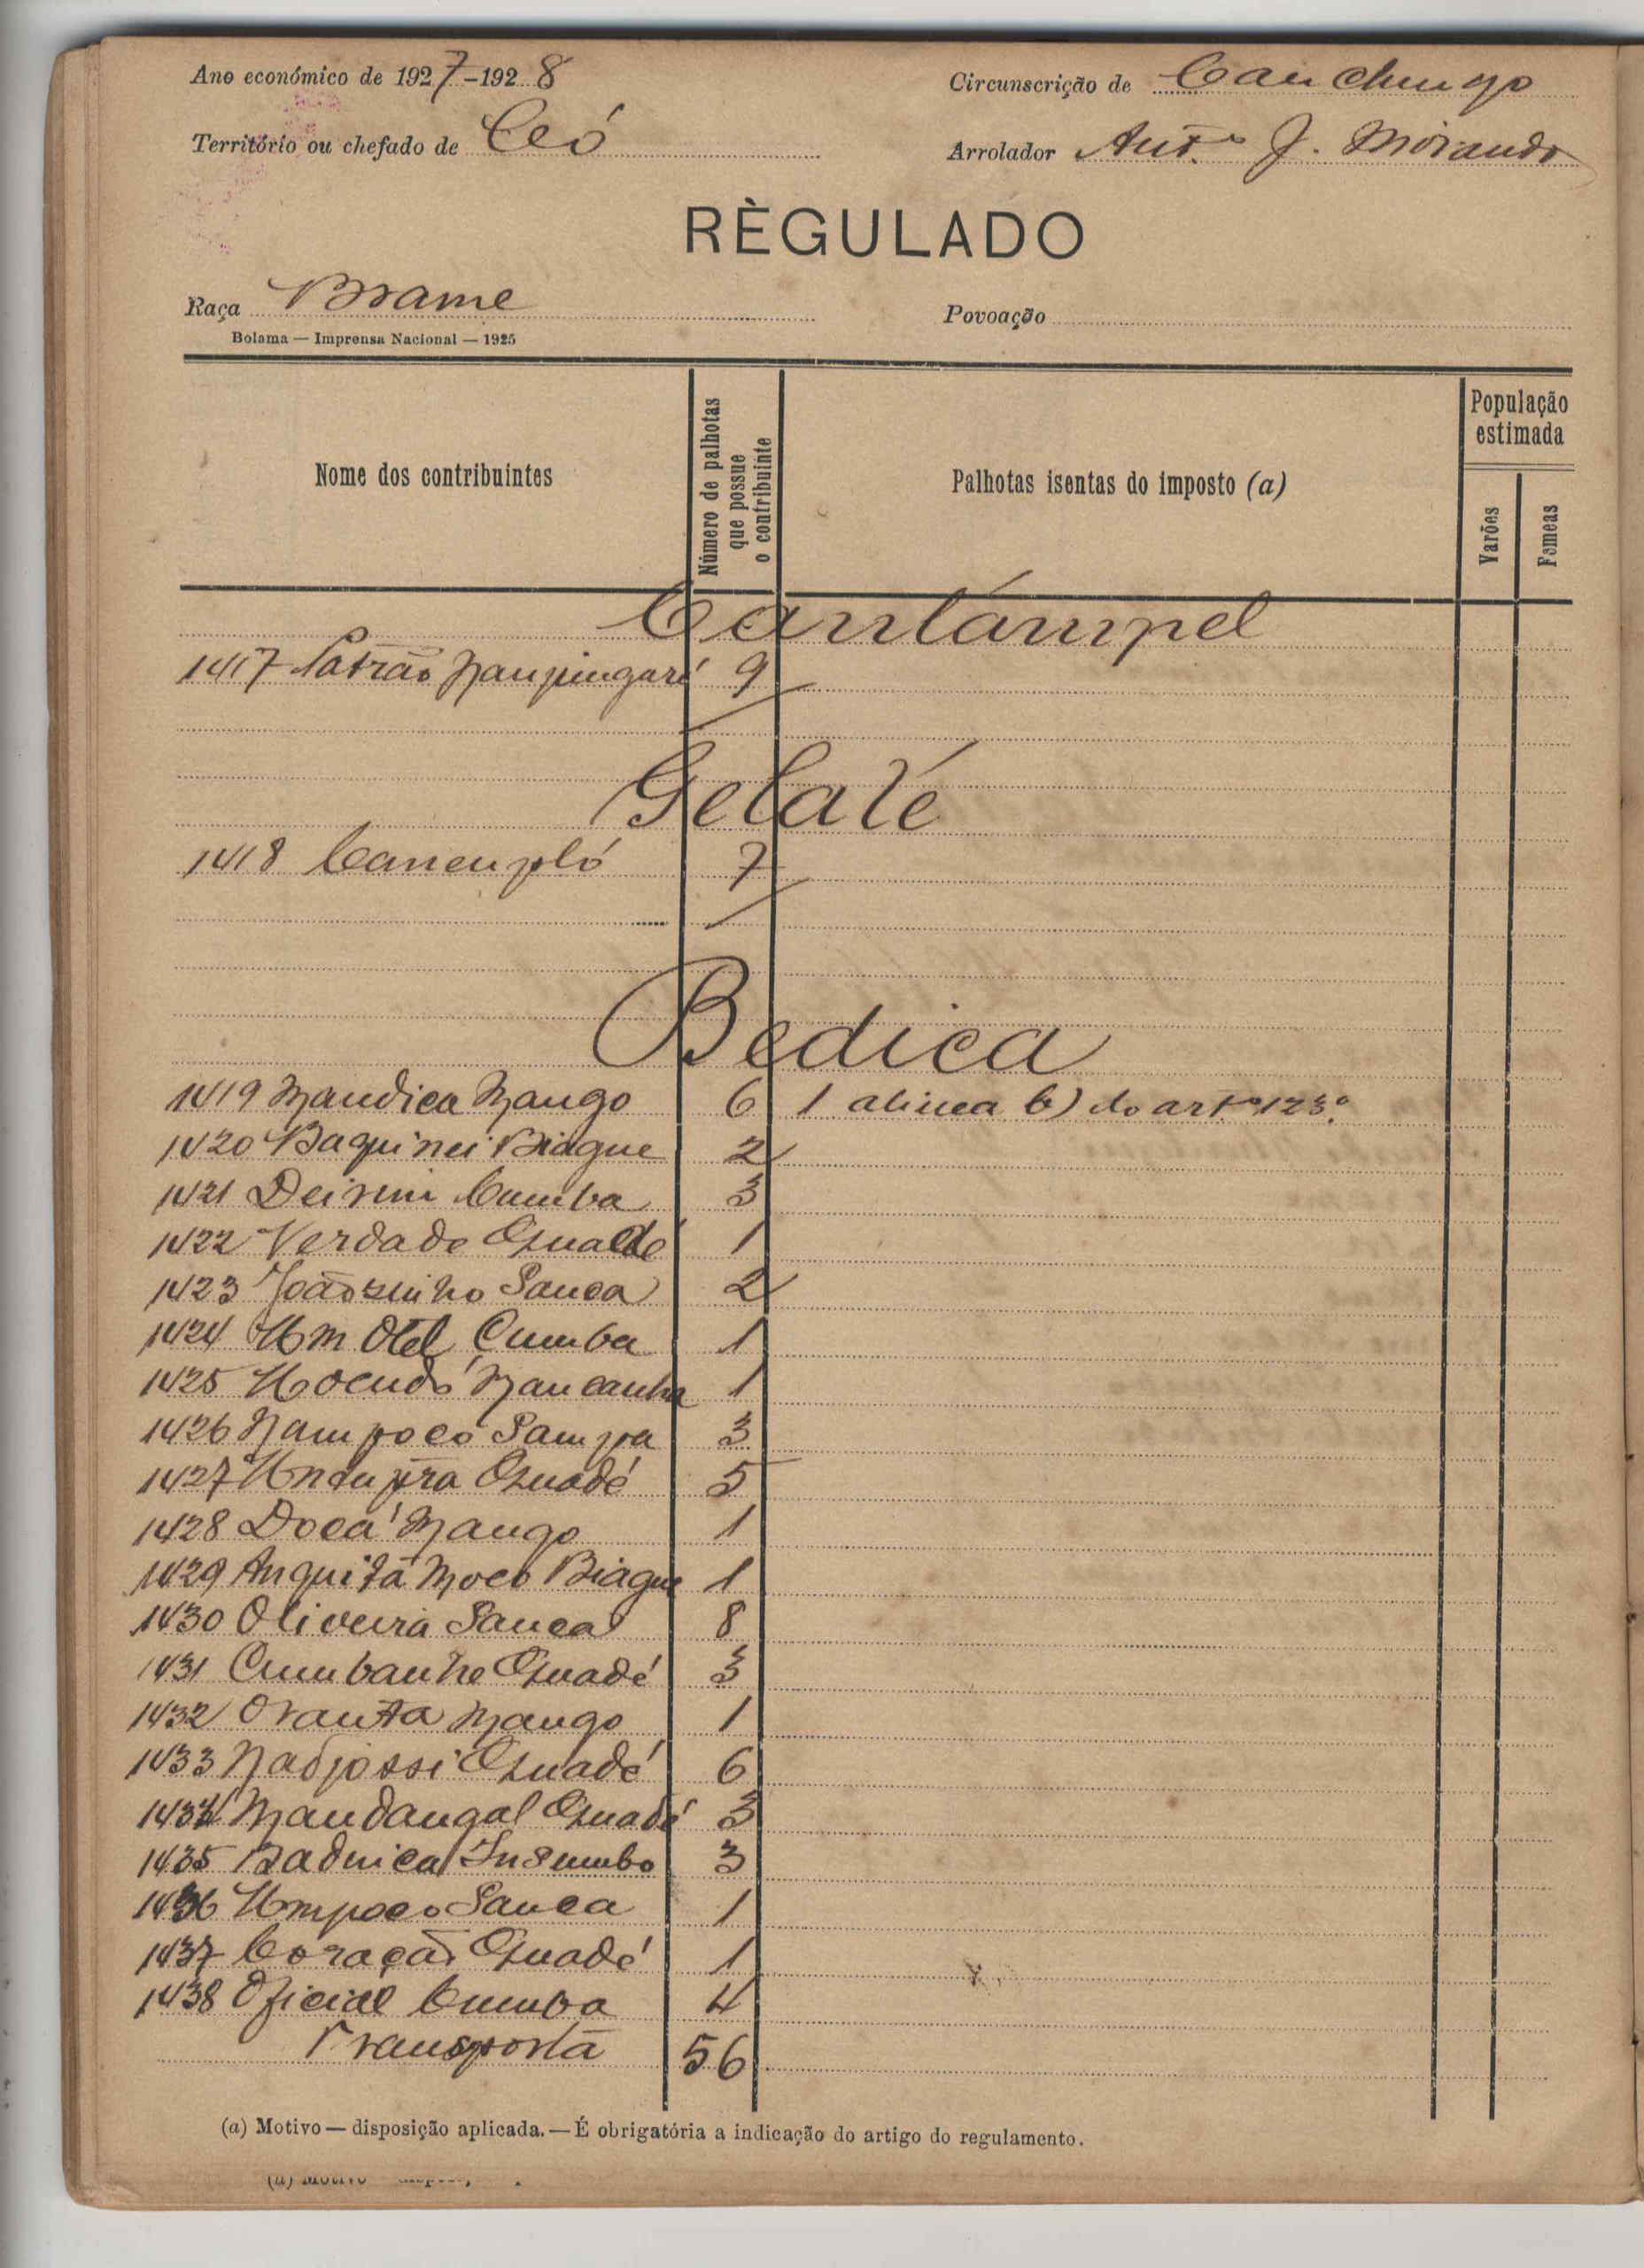 Ano económico de 1927-1928
Circunscrição de Canchungo
Território ou chefado de Có
Arrolador Antº J. Morando
RÈGULADO
Raça Brame
Povoação
Bolama — Imprensa Nacional — 1925
Nome dos contribuintes
Número de palhotas que possue o contribuinte
Palhotas isentas do imposto (a)
População estimada
Varões
Femeas
Cantámpel
1417 Patrão Nanpingaré 9
Gelaté
1418 Canenpló 7
Bedica
1419 Mandica Mango 6 1 alinea b) do artº 123º
1420 Baquinei Biague 2
1421 Deinini Cumba 3
1422 Verdade Quadé 1
1423 Joãosinho Sanca 2
1424 Um Otel Cumba 1
1425 Uocudó Mancanha 1
1426 Nampocó Sampa 3
1427 Quadé 5
1428 Docá Mango 1
1429 Anquitá Moco Biague 1
1430 Oliveira Sanca 8
1431 Cumbanhe Quadé 3
1432 Oranta Mango 1
1433 Nadjossi Quadé 6
1434 Mandangal Quadé 3
1435 Badnica Insumbo 3
1436 Umpoco Sanca 1
1437 Coração Quadé 1
1438 Oficial Cumba 4
Transporta 56
(a) Motivo — disposição aplicada. — É obrigatória a indicação do artigo do regulamento.